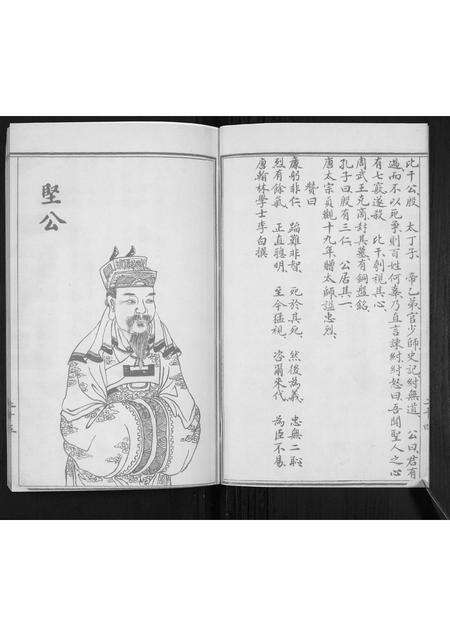 比干公殷 太丁子 帝乙弟官少師史記紂無道 公曰君有
過而不以死爭則百姓何辜乃直言諫紂紂怒曰吾聞聖人之心
有七竅遂殺 比干剖視其心
周武王克商封其墓有銅盤銘
孔子曰殷有三仁 公居其一
唐太宗貞觀十九年贈太師謚忠烈
贊曰
廉躬非仁 蹈難非智 死於其死 然後為義 忠無二軀
烈有餘氣 正直聰明 至今猛視 咨爾來代 為臣不易
唐翰林學士李白撰
堅公